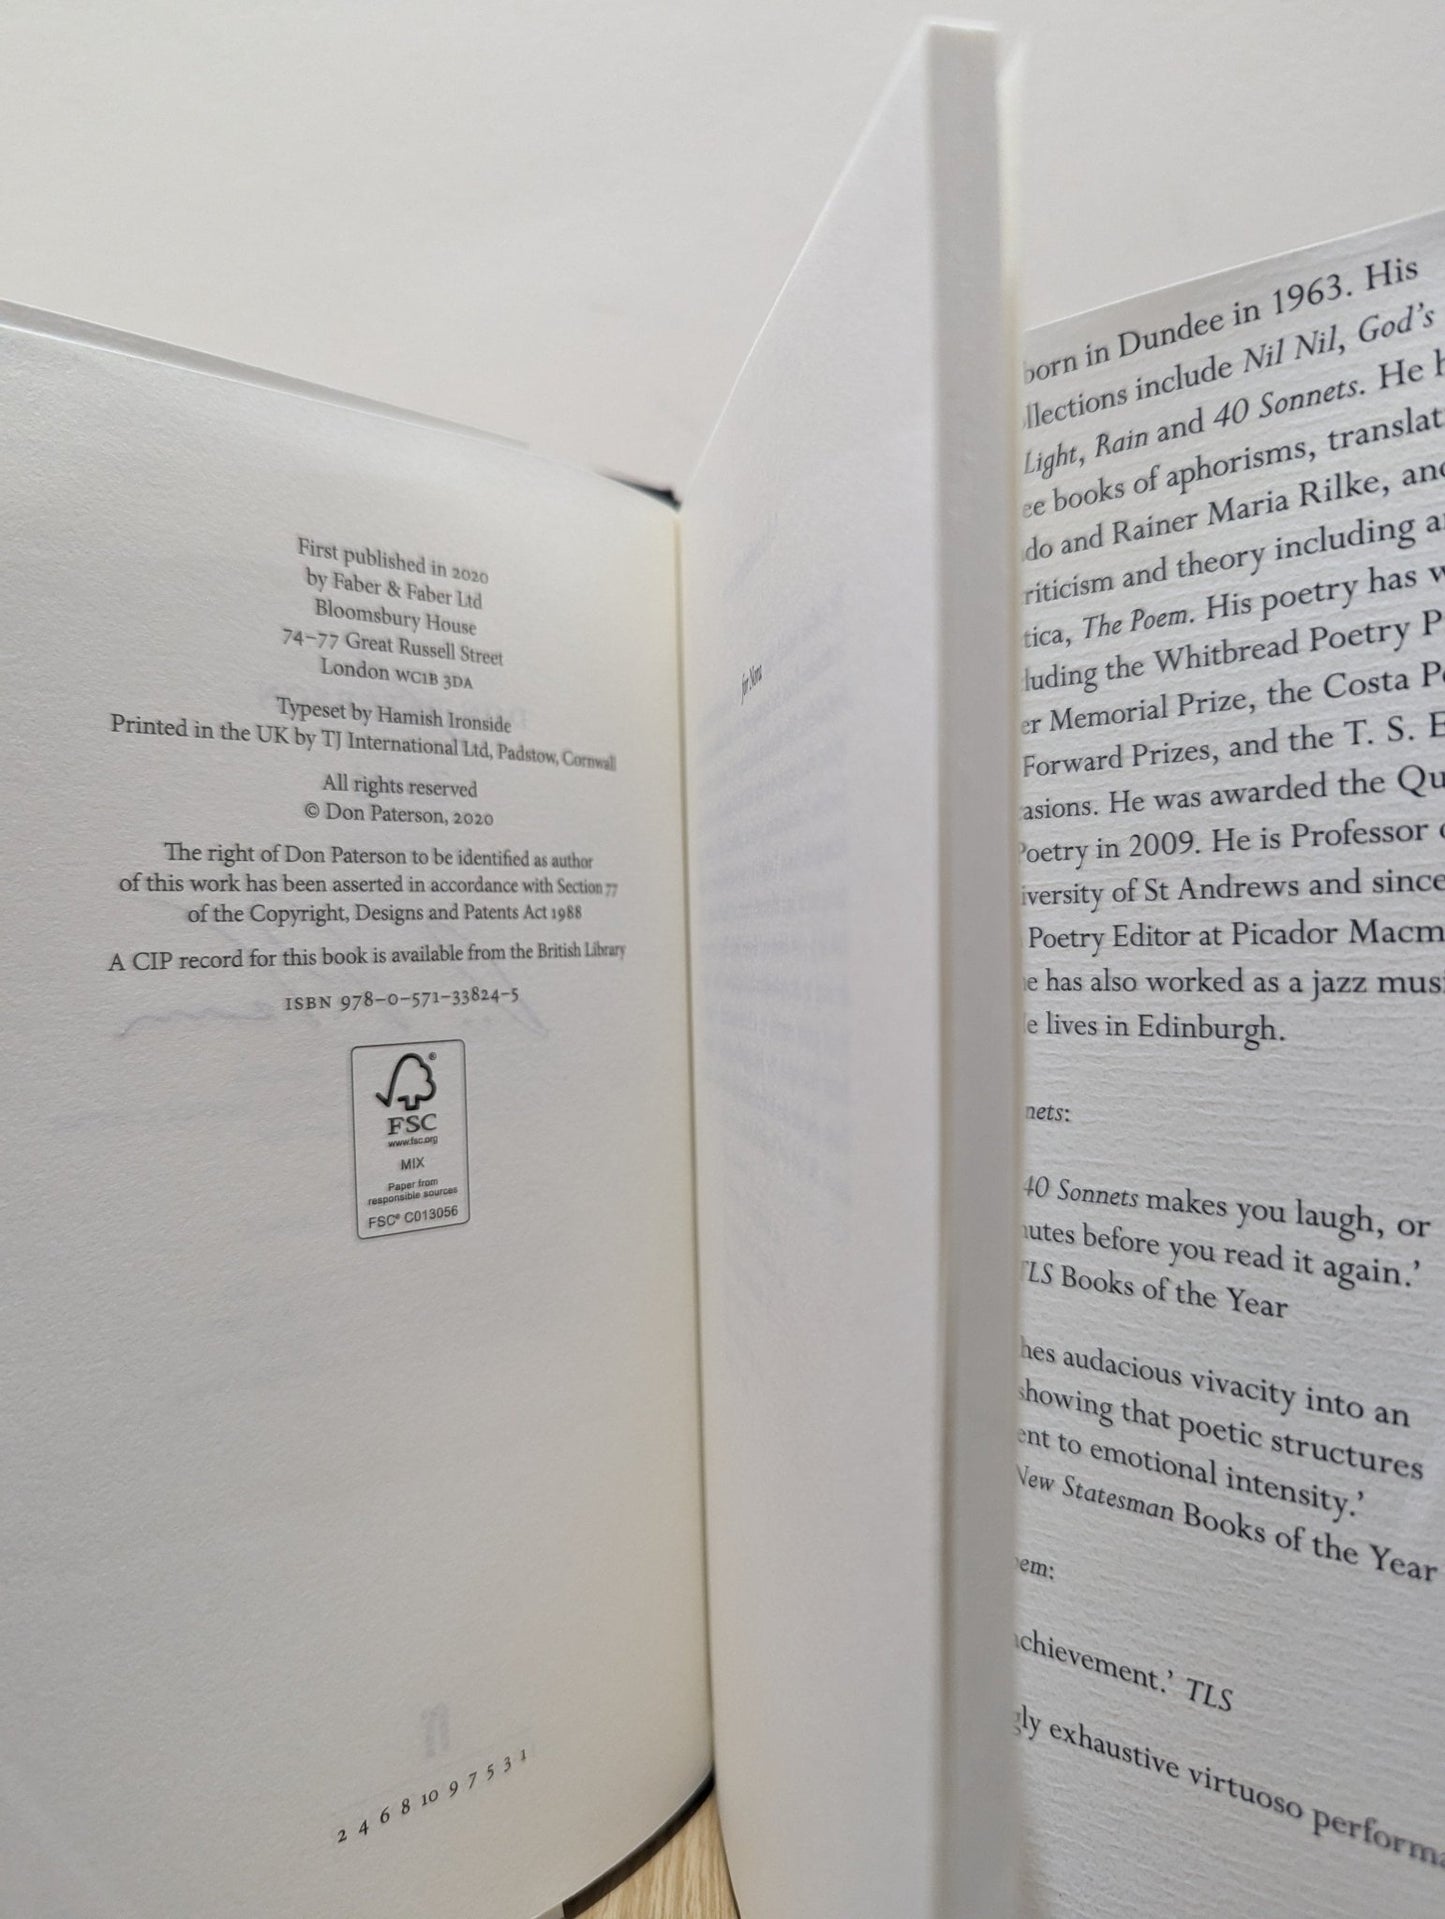 First published in 2020
by Faber & Faber Ltd
Bloomsbury House
74–77 Great Russell Street
London WC1B 3DA
Typeset by Hamish Ironside
Printed in the UK by TJ International Ltd, Padstow, Cornwall
All rights reserved
© Don Paterson, 2020
The right of Don Paterson to be identified as author
of this work has been asserted in accordance with Section 77
of the Copyright, Designs and Patents Act 1988
A CIP record for this book is available from the British Library
ISBN 978–0–571–33824–5
FSC®
www.fsc.org
MIX
Paper from
responsible sources
FSC® C013056
2 4 6 8 10 9 7 5 3 1
for Nora
born in Dundee in 1963. His
llections include Nil Nil, God's
Light, Rain and 40 Sonnets. He h
ee books of aphorisms, translat
do and Rainer Maria Rilke, and
riticism and theory including a
tica, The Poem. His poetry has w
luding the Whitbread Poetry P
er Memorial Prize, the Costa P
Forward Prizes, and the T. S. E
asions. He was awarded the Qu
Poetry in 2009. He is Professor o
iversity of St Andrews and since
Poetry Editor at Picador Macm
e has also worked as a jazz mus
e lives in Edinburgh.
nets:
40 Sonnets makes you laugh, or
nutes before you read it again.'
TLS Books of the Year
hes audacious vivacity into an
showing that poetic structures
ent to emotional intensity.'
New Statesman Books of the Year
oem:
achievement.' TLS
gly exhaustive virtuoso performa